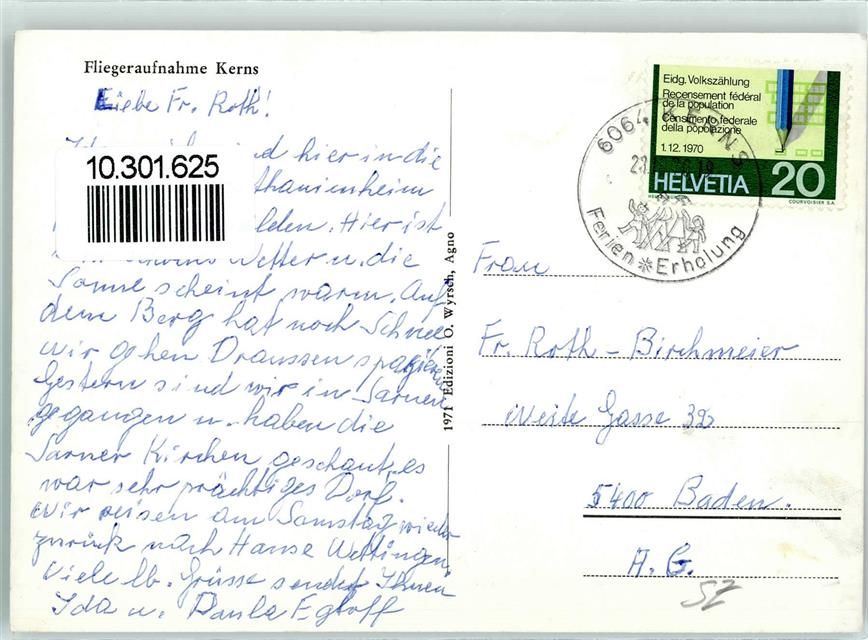 Fliegeraufnahme Kerns
Liebe Fr. Roth!
hier in die
10.301.625
lden. Hier ist
Wetter u. die
Sonne scheint warm. Auf
dem Berg hat noch Schnee
wir gehen Draussen spazieren
Gestern sind wir in Sarnen
gegangen u. haben die
Sarner Kirchen geschaut, es
war sehr prächtiges Dorf.
Wir reisen am Samstag wieder
zurück nach Hause Wettingen
Viele lb. Grüsse sendet Ihnen
Ida u. Paula Egloff
1971 Edizioni O. Wyrsch, Agno
Eidg. Volkszählung
Recensement fédéral
de la population
Censimento federale
della popolazione
1.12.1970
HELVETIA 20
COURVOISIER S.A.
6064 KERNS
Ferien * Erholung
Frau
Fr. Roth - Birchmeier
Weite Gasse
5400 Baden.
A. G.